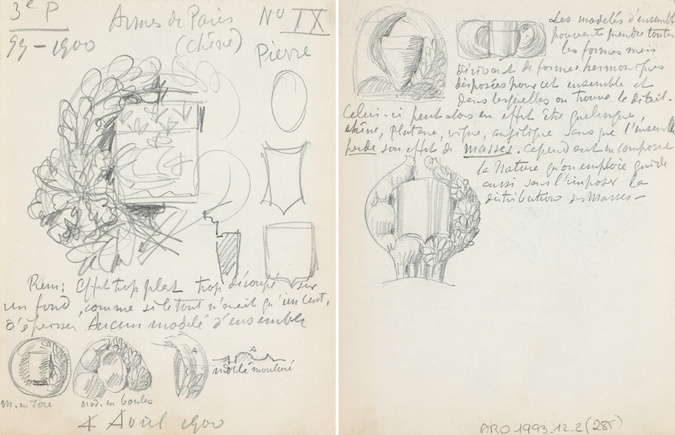 3e P
99-1900
Armes de Paris
(Chêne)
No IX
Pierre
Rem: Effet trop plat trop découpé sur
un fond, comme si le tout n'avait qu'un cent.
d'épaisseur Aucun modelé d'ensemble
M. en tore
Mod. en boules
modelé mouluré
4 Avril 1900
Les modelés d'ensemble
peuvent prendre toutes
les formes mais
dérivant de formes harmoniques
disposées pour cet ensemble et
dans lesquelles on trouve le détail.
Celui-ci peut alors en effet être quelconque,
chêne, platane, vigne, angélique sans que l'ensemble
perde son effet de masses. Cependant en composant
la Nature qu'on emploie guide
aussi sans l'imposer la
distribution des Masses-
ARO 1993.12.2 (285)